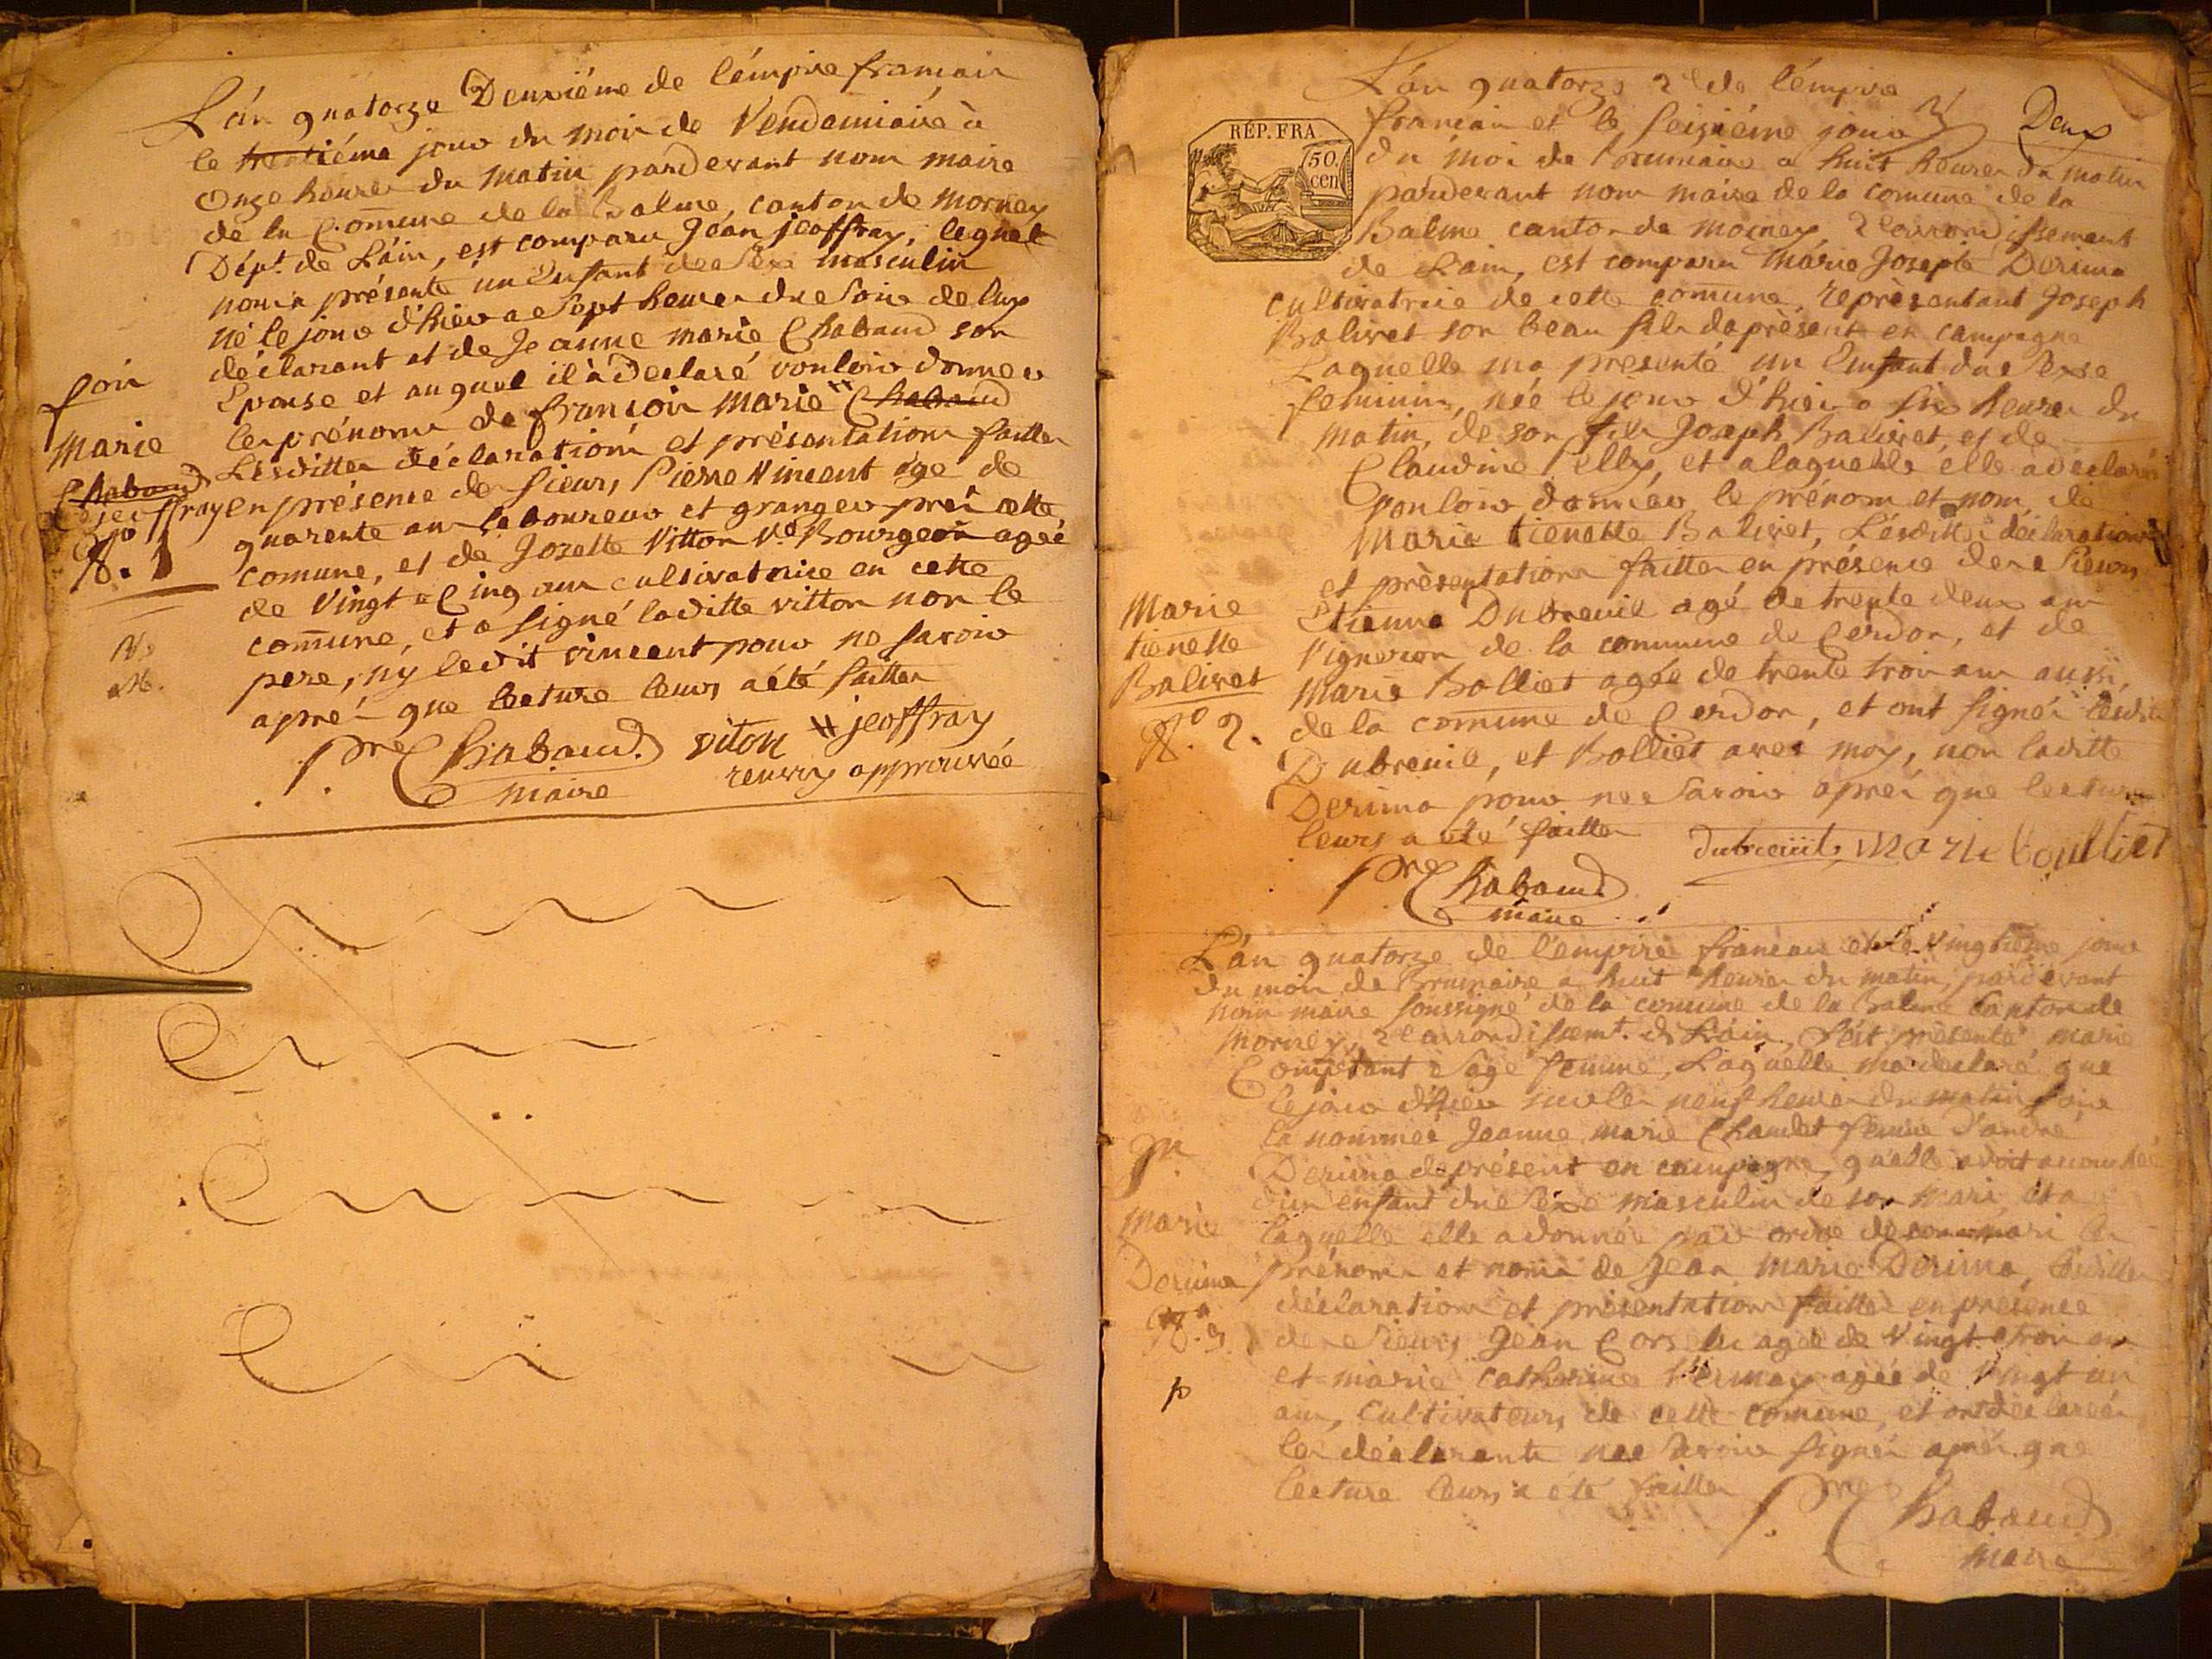 L'án quatorze Deuxiéme de l'émpire francais
le trentiéme jour du mois de Vendemiaire à
onze heures du matin pardevant nous maire
de la Comune de la Balme, canton de mornay
Dépt. de L'ain, est comparu Jéan jeoffray, lequel
nous a présenté un Enfant de Sexe masculin
né le jour d'hiér a Sept heures du Soir de luy
déclarant et de Jeanne marie Chabaud son
Epouse et auquel il à déclaré vouloir donner
les prénoms de francois marie Chabaud
Lesdittes déclarations et présentations faittes
en présence des Sieurs Pierre Vincent âge de
quarente ans laboureur et granger prei cette
comune, et de Jozette Vitton Ve. Bourgeois agée
de Vingt Cinq ans cultivatrice en cette
comune, et a Signé laditte vitton non le
pere, ny ledit vincent pour ne Savoir
aprés que lecture leurs a été faittes
Pre Chabaud viton # jeoffray
maire renvoy approuvée
fois
Marie
Chabaud
jeoffray
No. 1
Deux
L'án quatorze 2e de l'émpire
francais et le Seiziéme jour
du mois de brumaire a huit heures du matin
pardevant nous maire de la comune de la
Balme canton de mornay, 2e arrondissement
de L'ain, est comparu Márie Josepte Derima
cultivatrice de cette comune, représentant Joseph
Balivet son beau fils da présent en campagne
Laquelle ma presenté un Enfant du Sexe
feminin, née le jour d'hiér a Six heures du
matin, de son fils Joseph Balivet, et de
Claudine Pelly, et a laquelle elle a déclaré
vouloir donner le prénom et nom de
Marie tienette Balivet, Lésdittes déclarations
et présentations faittes en présence des Sieurs
Etienne Dubreuil agé de trente deux ans
Vigneron de la commune de Cerdon, et de
Marie Bolliet agée de trente trois ans aussi
de la comune de Cerdon, et ont Signés lesdits
Dubreuil, et Bolliet avec moy, non laditte
Derima pour nee Savoir aprés que lecture
leurs a été faittes
dubreuil Marie boulliet
Pre Chabaud
maire
Marie
tienette
Balivet
No. 2.
RÉP. FRA
50
cen
L'án quatorze de l'émpire francais et le Vingtiéme jour
du mois de Brumaire a huit heures du matin, pardevant
nous maire Soussigné de la comune de la Balme Canton de
Mornay, 2e arrondissemt. de L'ain, S'ést présenté marie
Compétant Sage femme, Laquelle ma déclaré que
le jour d'hiér sur les neuf heures du matin Soir
la nommée Jeanne marie Chaudet femme d'andré
Derima da présent en campagne, qu'elle avoit accouchée
d'un enfant du Sexe masculin de son mari, et a
laquelle elle a donnée par ordre de son mari les
prénoms et noms de Jean Marie Derima, lesdittes
déclarations et présentations faittes en présence
des Sieurs Jéan agée de Vingt trois ans
et márie Catherine agée de Vingt un
ans, Cultivateurs de cette comune, et ont déclarés
les déclarants nee Savoir Signér aprés que
lecture leurs a été faittes
Pre Chabaud
maire
Jn
Marie
Derima
No. 3
p